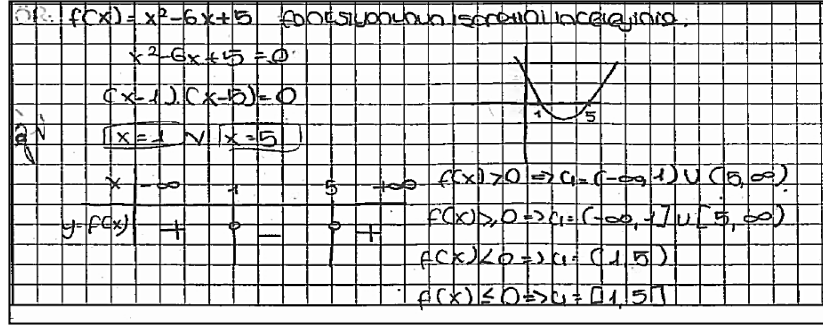 ÖR: f(x) = x²-6x+5 fonksiyonunun işaretini inceleyiniz.
x²-6x+5 = 0
(x-1).(x-5) = 0
x=1 ∨ x=5
1 5
x -∞ 1 5 +∞
y=f(x) + 0 - 0 +
f(x)>0 => Ç= (-∞,1) ∪ (5,∞)
f(x)≥0 => Ç= (-∞,1] ∪ [5,∞)
f(x)<0 => Ç= (1,5)
f(x) ≤0 => Ç= [1,5]